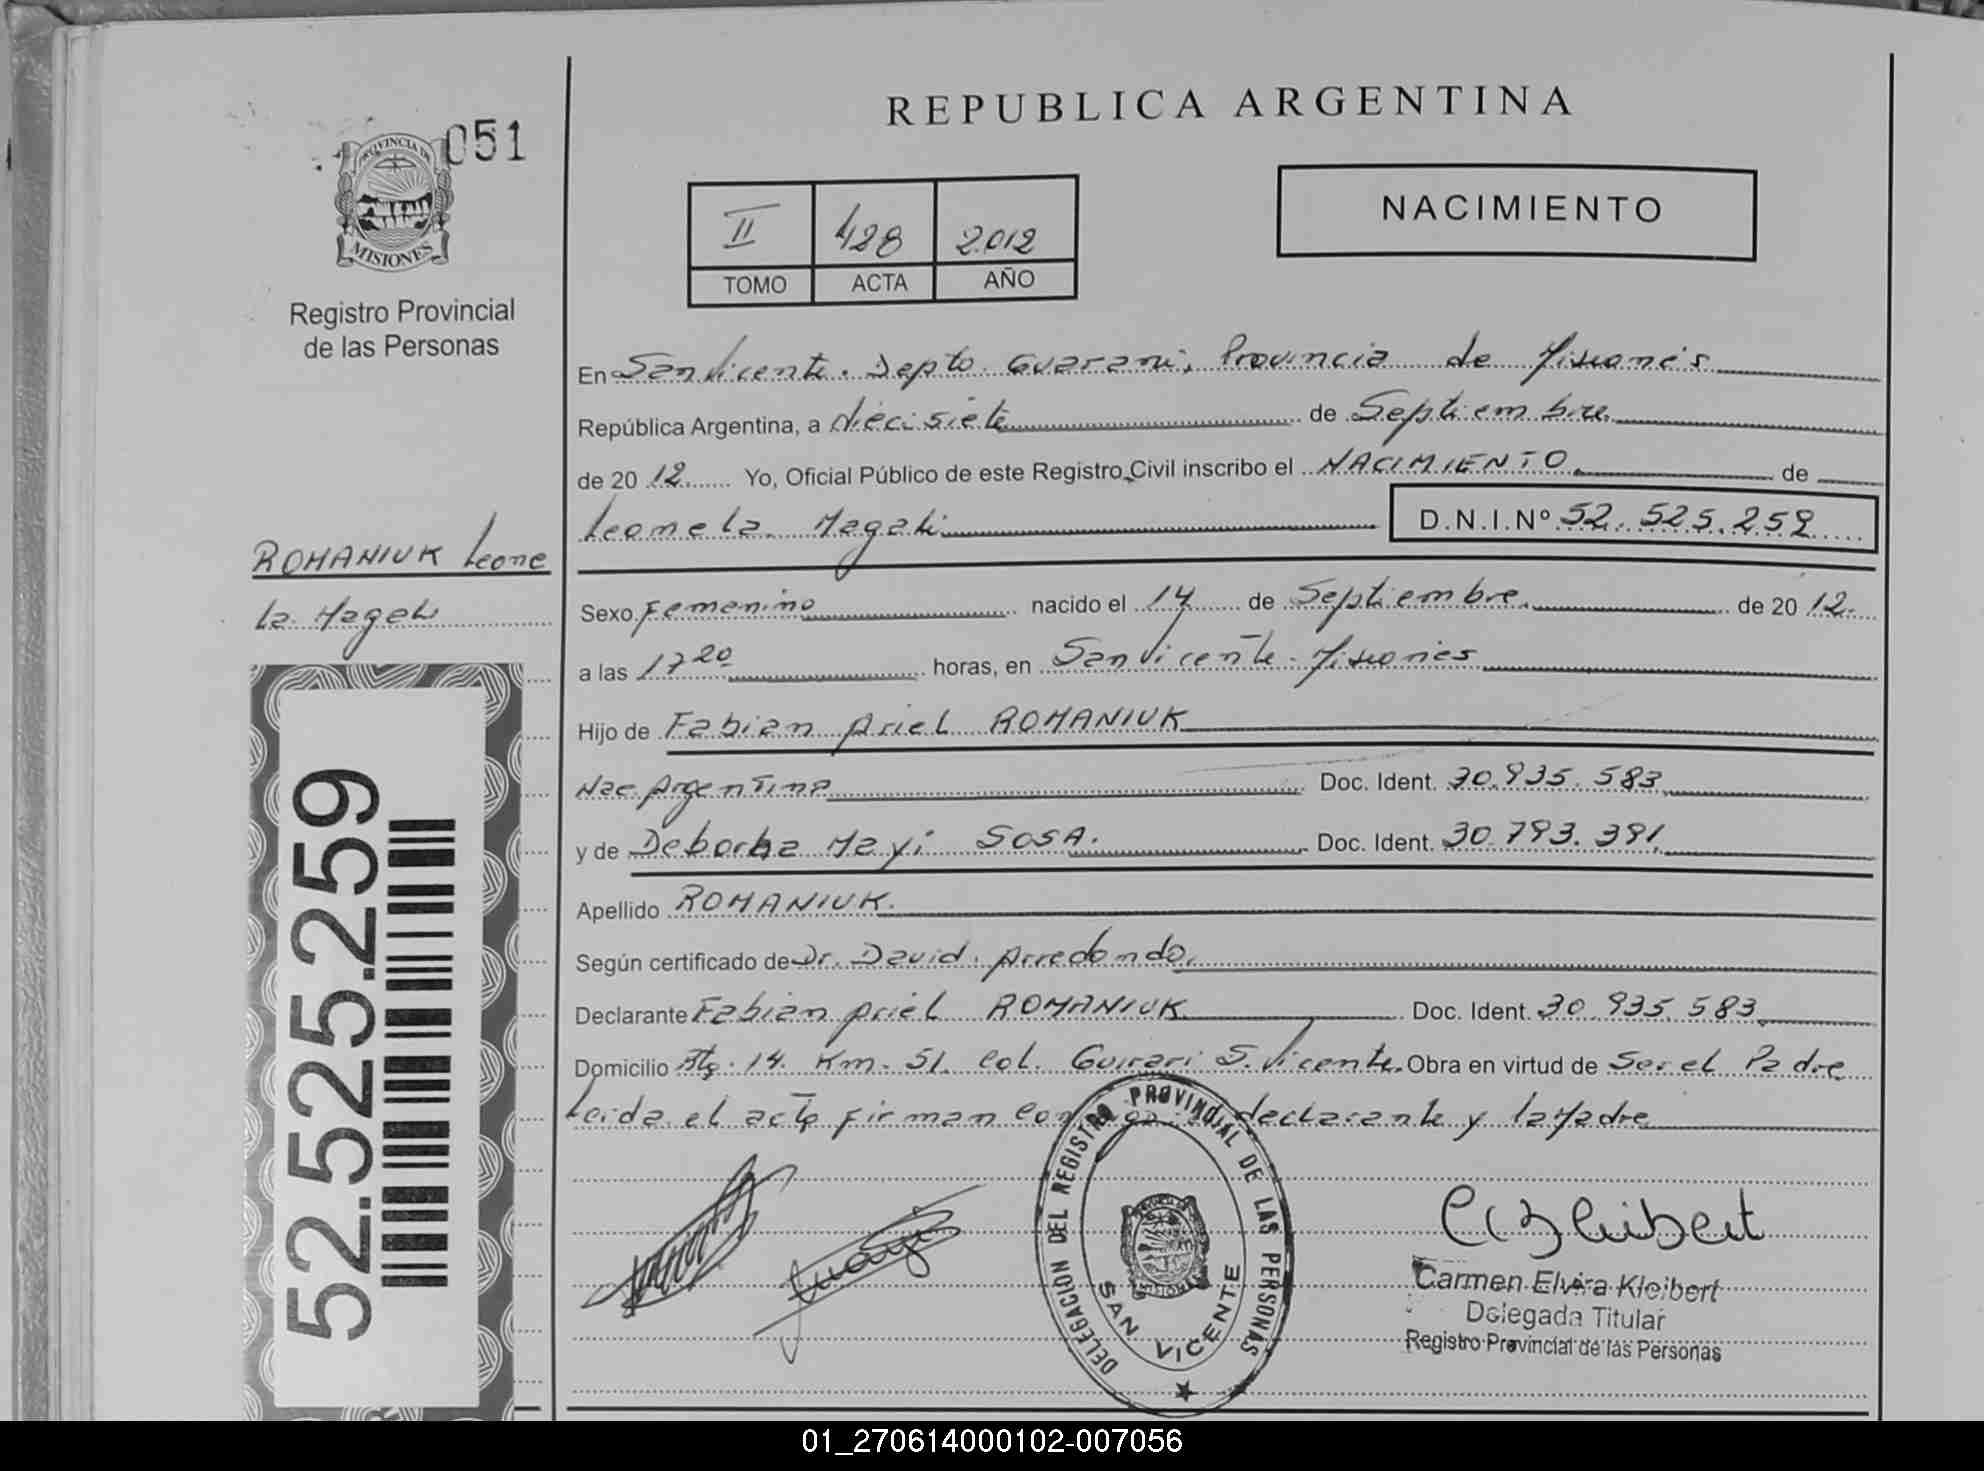 051
PROVINCIA DE
MISIONES
Registro Provincial
de las Personas
REPUBLICA ARGENTINA
NACIMIENTO
II 428 2.012
TOMO ACTA AÑO
En San Vicente. Depto. Guarani, Provincia de Misiones
República Argentina, a diecisiete de Septiembre
de 20 12 Yo, Oficial Público de este Registro Civil inscribo el NACIMIENTO de
Leonela Magali D.N.I.Nº 52.525.259
ROMANIUK Leone
la Magali
Sexo Femenino nacido el 14 de Septiembre de 20 12.
a las 17 20 horas, en San Vicente - Misiones
Hijo de Fabian Ariel ROMANIUK
Nac. Argentina Doc. Ident. 30.935.583
y de Deborha Mayi SOSA. Doc. Ident. 30.793.391
Apellido ROMANIUK.
Según certificado de Dr. David Arredondo
Declarante Fabian Ariel ROMANIUK Doc. Ident. 30.935.583
Domicilio 14 Km. 51. Col. Guirari S. Vicente. Obra en virtud de Ser el Padre
Leida el acta firman declarante y la Madre
52.525.259
DELEGACION DEL REGISTRO PROVINCIAL DE LAS PERSONAS
MISIONES
SAN VICENTE
Carmen Elvira Kleibert
Delegada Titular
Registro Provincial de las Personas
01_270614000102-007056